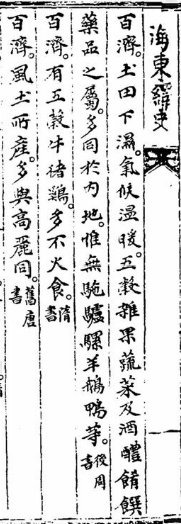 海東繹史
百濟。土田下濕。氣候溫暖。五穀雜果蔬菜及酒醴餚饌
藥品之屬。多同於內地。惟無駝驢騾羊鵝鴨等。後周書
百濟。有五穀牛猪鷄。多不火食。隋書
百濟。風土所產。多與高麗同。舊唐書